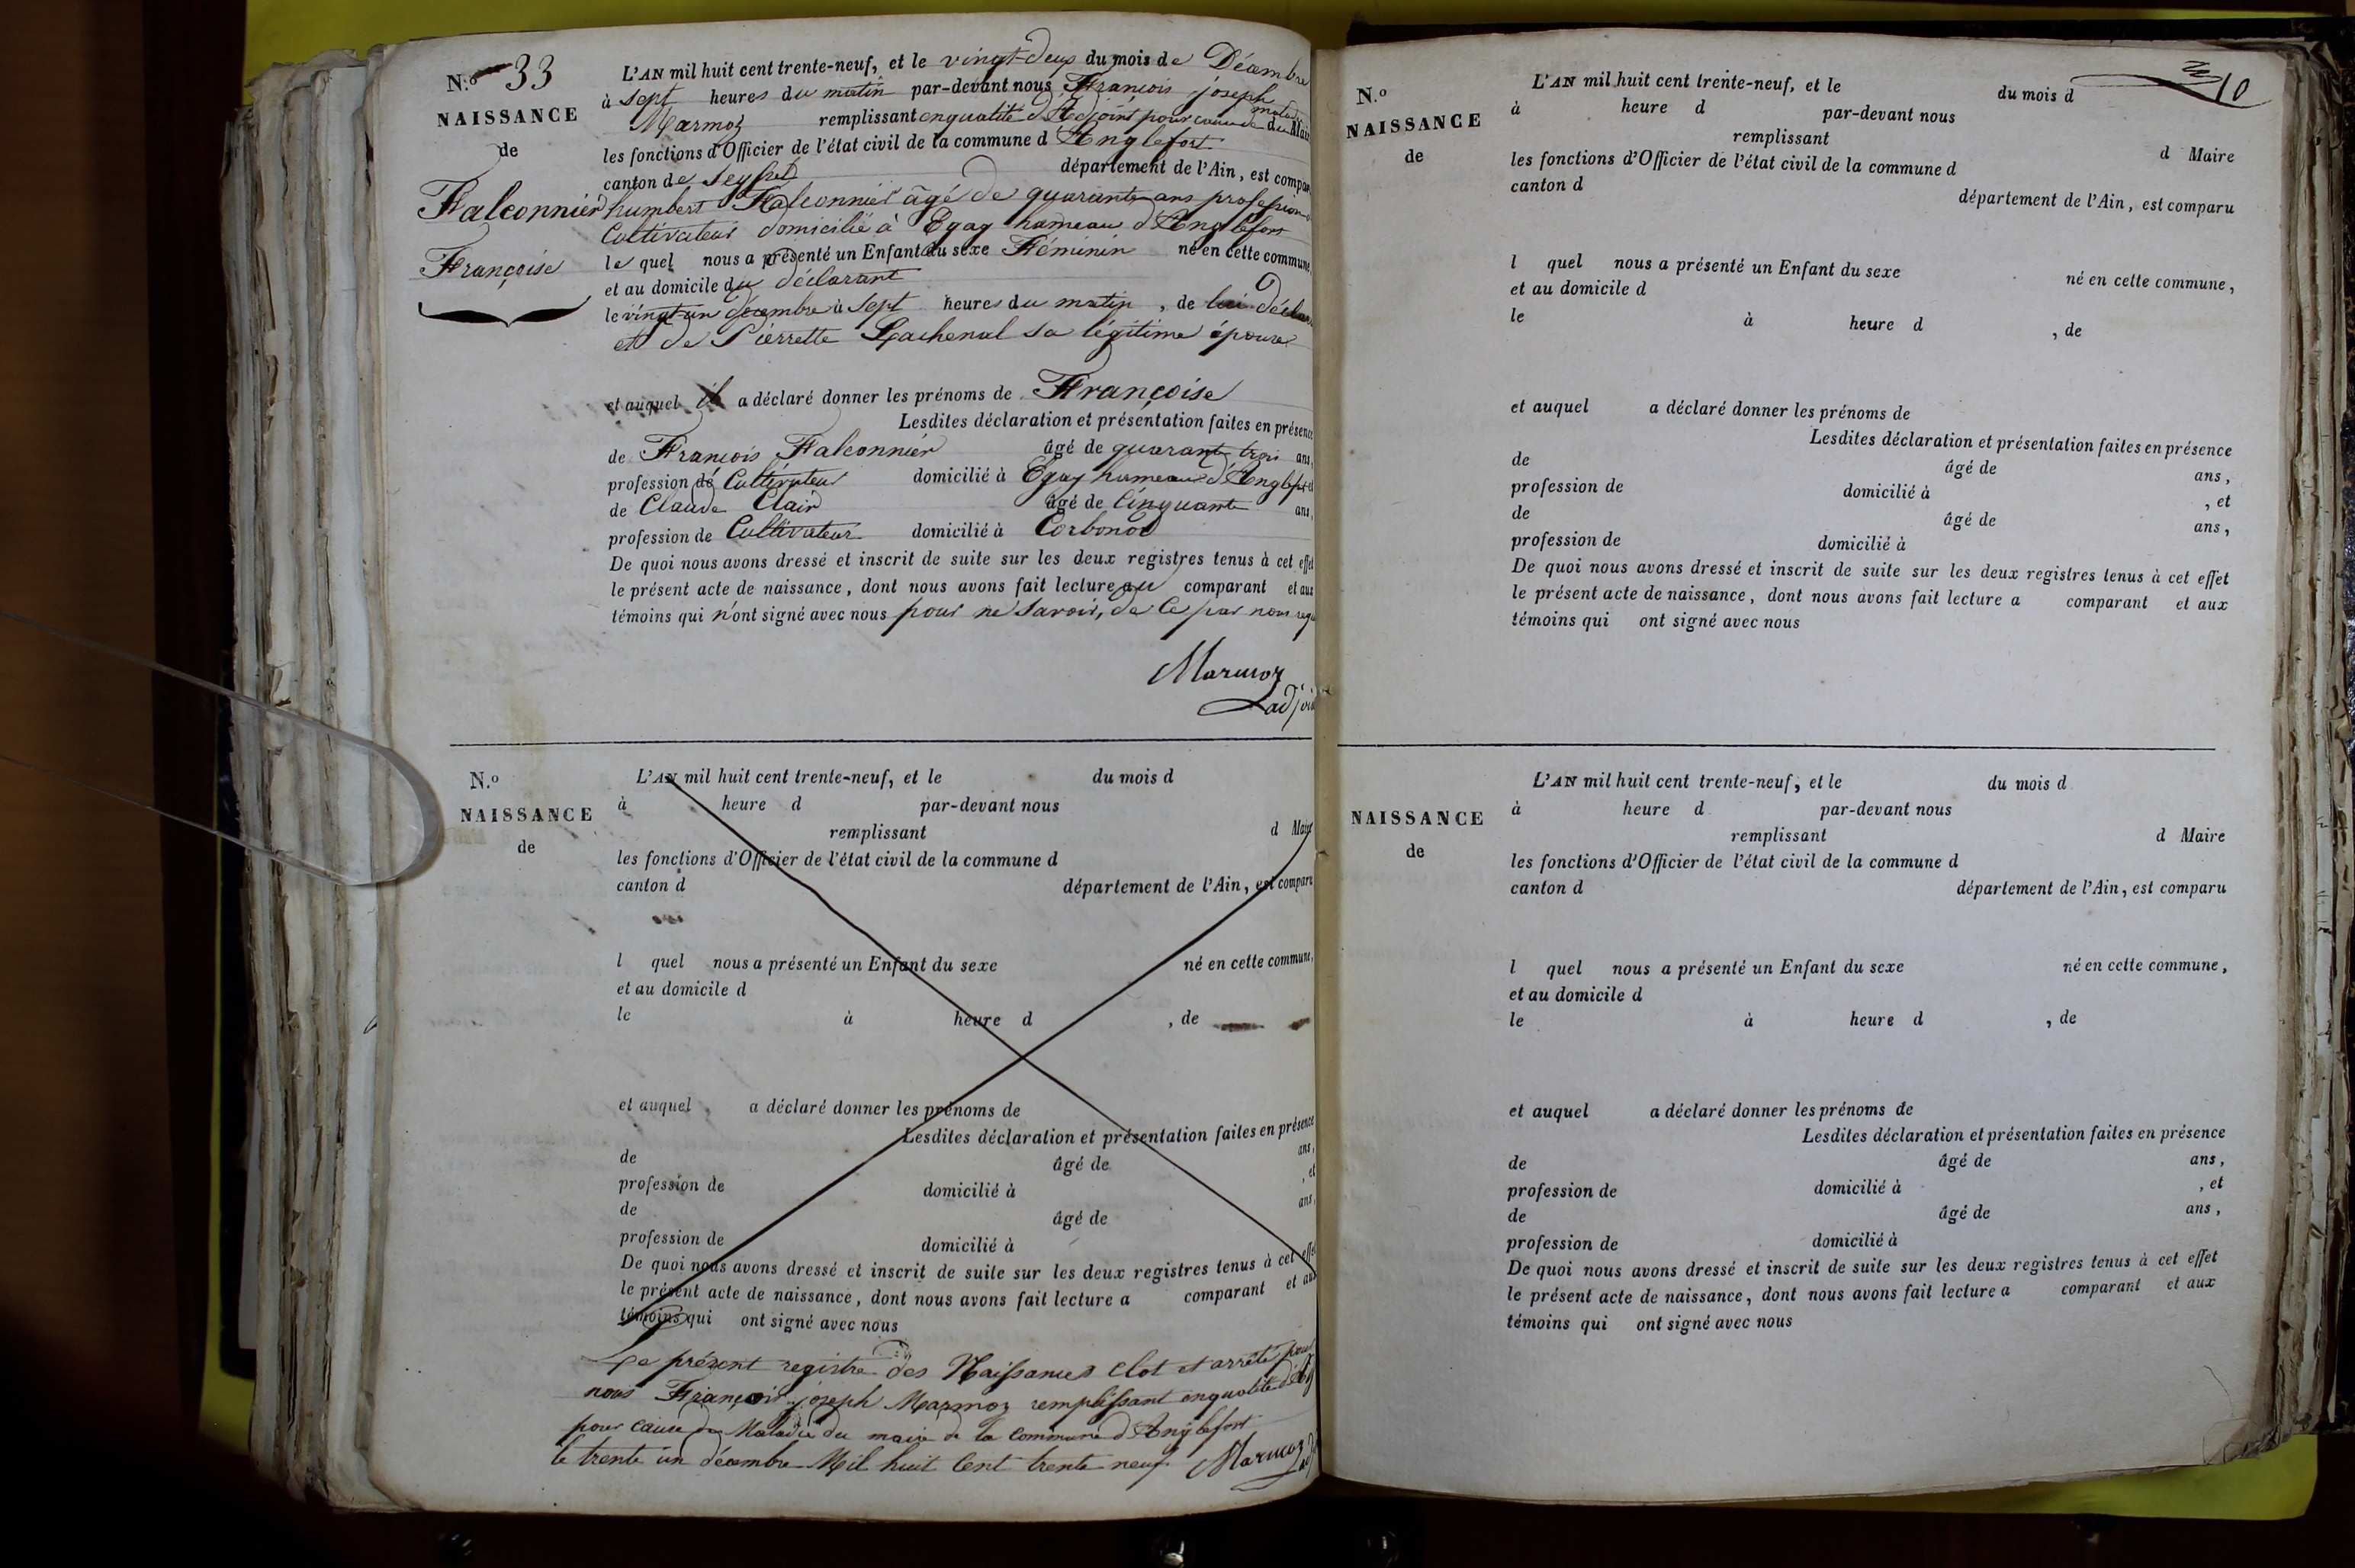 N.o 33
NAISSANCE
de
Falconnier
Françoise
L'AN mil huit cent trente-neuf, et le vingt-deux du mois de Décembre
à sept heures du matin par-devant nous François joseph
Marmoz remplissant enqualité d'Adjoint pour cause de maladie du Maire
les fonctions d'Officier de l'état civil de la commune d'Anglefort
canton de Seyssel département de l'Ain, est compar
humbert Falconnier âgé de quarante ans profession
Cultivateur domicilié à Egag hameau d'Anglefort
le quel nous a présenté un Enfant du sexe Féminin né en cette commune,
et au domicile du déclarant
le vingt-un décembre à Sept heures du matin, de lui déclar
et de Pierrette Lachenal sa légitime épouse
et auquel il a déclaré donner les prénoms de Françoise
Lesdites déclaration et présentation faites en présence
de François Falconnier âgé de quarante trois ans,
profession de Cultivateur domicilié à Egag hameau d'Anglefort
de Claude Clair âgé de Cinquante ans,
profession de Cultivateur domicilié à Corbonod
De quoi nous avons dressé et inscrit de suite sur les deux registres tenus à cet effet
le présent acte de naissance, dont nous avons fait lecture au comparant et aux
témoins qui n'ont signé avec nous pour ne Savoir, de Ce par nous
Marmoz
adjoi
N.o
NAISSANCE
de
L'AN mil huit cent trente-neuf, et le du mois d
à heure d par-devant nous
remplissant d Maire
les fonctions d'Officier de l'état civil de la commune d
canton d département de l'Ain, est comparu
l quel nous a présenté un Enfant du sexe né en cette commune,
et au domicile d
le à heure d , de
et auquel a déclaré donner les prénoms de
Lesdites déclaration et présentation faites en présence
de âgé de ans,
profession de domicilié à , et
de âgé de ans,
profession de domicilié à
De quoi nous avons dressé et inscrit de suite sur les deux registres tenus à cet effet
le présent acte de naissance, dont nous avons fait lecture a comparant et aux
témoins qui ont signé avec nous
Le présent registre des Naissances Clot et arrêté pour
nous François joseph Marmoz remplissant enqualité d'
pour cause de Maladie du maire de la Commune d'Anglefort
le trente un décembre Mil huit Cent trente neuf Marmoz
10
N.o
NAISSANCE
de
L'AN mil huit cent trente-neuf, et le du mois d
à heure d par-devant nous
remplissant d Maire
les fonctions d'Officier de l'état civil de la commune d
canton d département de l'Ain, est comparu
l quel nous a présenté un Enfant du sexe né en cette commune,
et au domicile d
le à heure d , de
et auquel a déclaré donner les prénoms de
Lesdites déclaration et présentation faites en présence
de âgé de ans,
profession de domicilié à , et
de âgé de ans,
profession de domicilié à
De quoi nous avons dressé et inscrit de suite sur les deux registres tenus à cet effet
le présent acte de naissance, dont nous avons fait lecture a comparant et aux
témoins qui ont signé avec nous
NAISSANCE
de
L'AN mil huit cent trente-neuf, et le du mois d
à heure d par-devant nous
remplissant d Maire
les fonctions d'Officier de l'état civil de la commune d
canton d département de l'Ain, est comparu
l quel nous a présenté un Enfant du sexe né en cette commune,
et au domicile d
le à heure d , de
et auquel a déclaré donner les prénoms de
Lesdites déclaration et présentation faites en présence
de âgé de ans,
profession de domicilié à , et
de âgé de ans,
profession de domicilié à
De quoi nous avons dressé et inscrit de suite sur les deux registres tenus à cet effet
le présent acte de naissance, dont nous avons fait lecture a comparant et aux
témoins qui ont signé avec nous